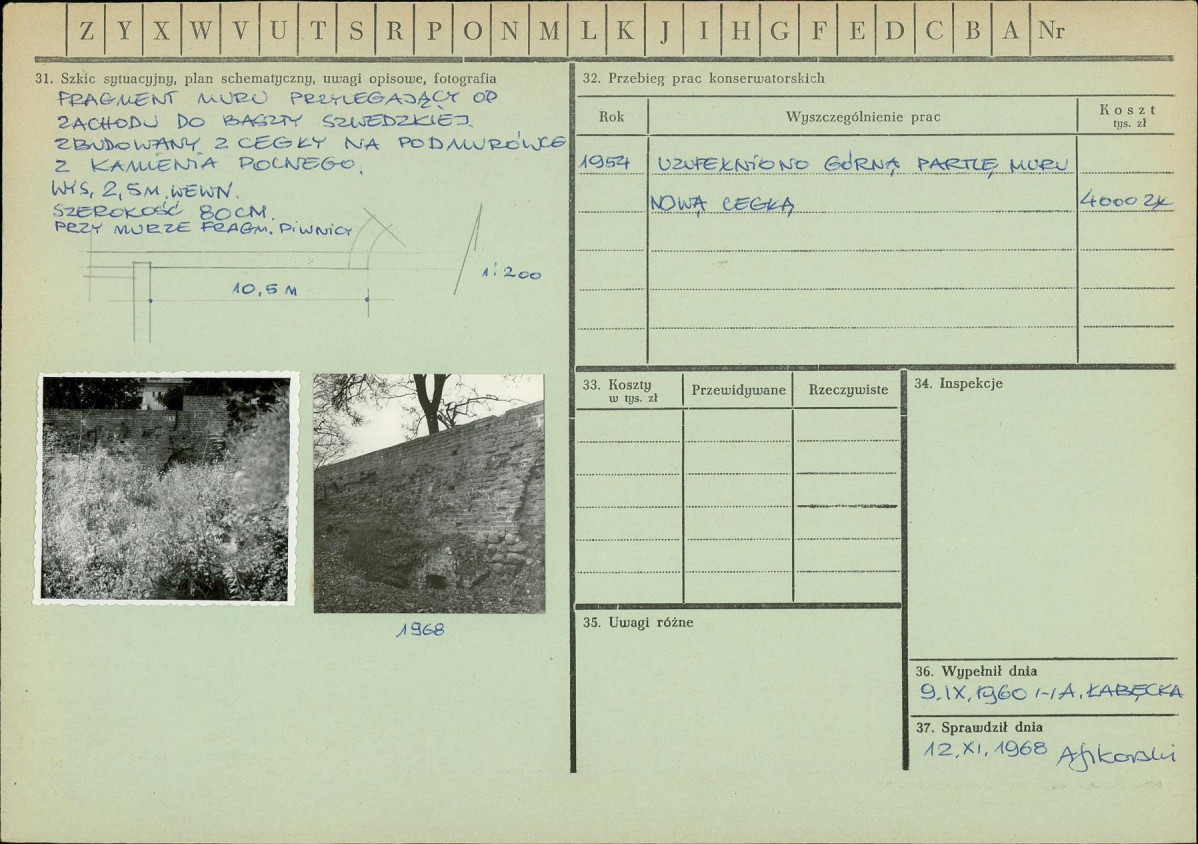 Z Y X W V U T S R P O N M L K J I H G F E D C B A Nr
31. Szkic sytuacyjny, plan schematyczny, uwagi opisowe, fotografia
FRAGMENT MURU PRZYLEGAJĄCY OD
ZACHODU DO BASZTY SZWEDZKIEJ.
ZBUDOWANY Z CEGŁY NA PODMURÓWCE
Z KAMIENIA POLNEGO.
WYS, 2,5M, WEWN.
SZEROKOŚĆ 80CM.
PRZY MURZE FRAGM. PIWNICY
1:200
10,5 M
1968
32. Przebieg prac konserwatorskich
Rok
Wyszczególnienie prac
Koszt
tys. zł
1954 UZUPEŁNIONO GÓRNĄ PARTIĘ MURU
NOWĄ CEGŁĄ 4000 ZŁ
33. Koszty
w tys. zł
Przewidywane
Rzeczywiste
34. Inspekcje
35. Uwagi różne
36. Wypełnił dnia
9.IX.1960 A. ŁABĘCKA
37. Sprawdził dnia
12.XI.1968